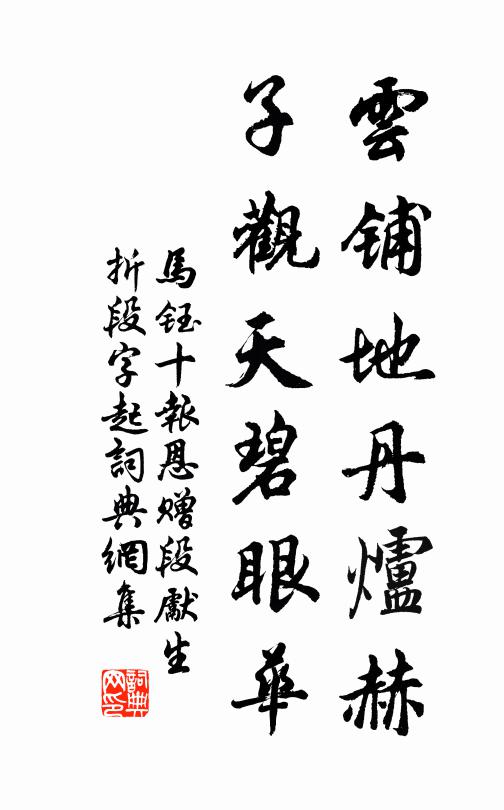 雲鋪地丹爐赫
子觀天碧眼華
馬鈺十報恩贈段獻生
折段字起詞典網集
詞典網印